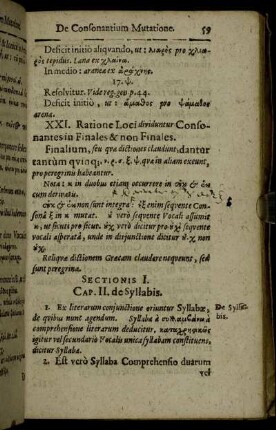 De Consonantium Mutatione. 59
Deficit initio aliqvando, ut: λιαρὸς pro χλια-
ρὸς tepidus. Lana ex χλαῖνα.
In medio: aranea ex ἀράχνη.
17. ψ.
Resolvitur. Vide reg. gen. p. 44.
Deficit initiò, ut: ἄμαθος pro ψάμαθος
arena.
XXI. Ratione Loci dividuntur Conso-
nantes in Finales & non Finales.
Finalium, seu qva dictiones claudunt, dantur
tantùm qvinq; ν. ρ. ς. ξ. ψ. qva in aliam exeunt,
pro peregrinis habeantur.
Nota: κ in duobus etiam occurrere in οὐκ & ἐκ
cum derivatis.
οὐκ & ἐκ non sunt integra: ἐξ enim seqvente Conso-
nâ ξ in κ mutat. ὀ verò seqvente Vocali assumit
κ, ut sicuti pro sicut. οὐχ verò dicitur pro οὐκ seqvente
vocali asperatâ, unde in disjunctione dicitur οὐκ non
οὐχ.
Reliqvæ dictionem Græcam claudere neqveunt, sed
sunt peregrina.
SECTIONIS I.
CAP. II. de Syllabis.
1. Ex literarum conjunctione oriuntur Syllabæ,
de qvibus nunc agendum. Syllaba à συλλαμβάνω à
comprehensione literarum deducitur, καταχρηστικῶς
igitur vel secundario Vocalis unica syllabam constituens,
dicitur Syllaba.
De Sylla-
bis.
2. Est verò Syllaba Comprehensio duarum
vel